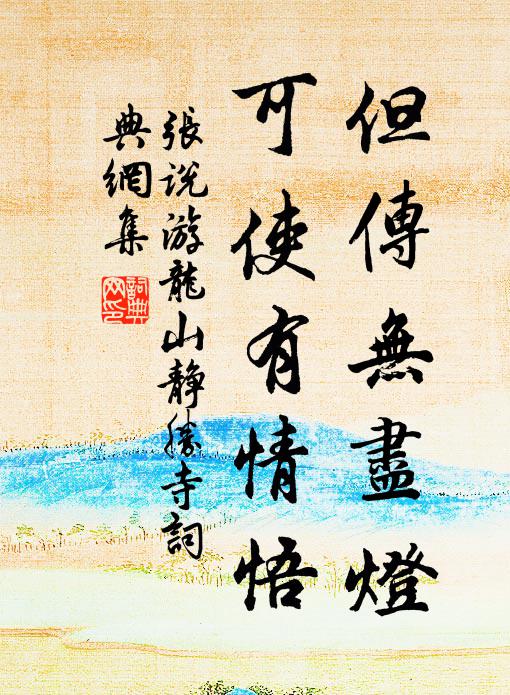 但傳無盡燈
可使有情悟
張说游龍山静勝寺詞
典網集
詞典
网印